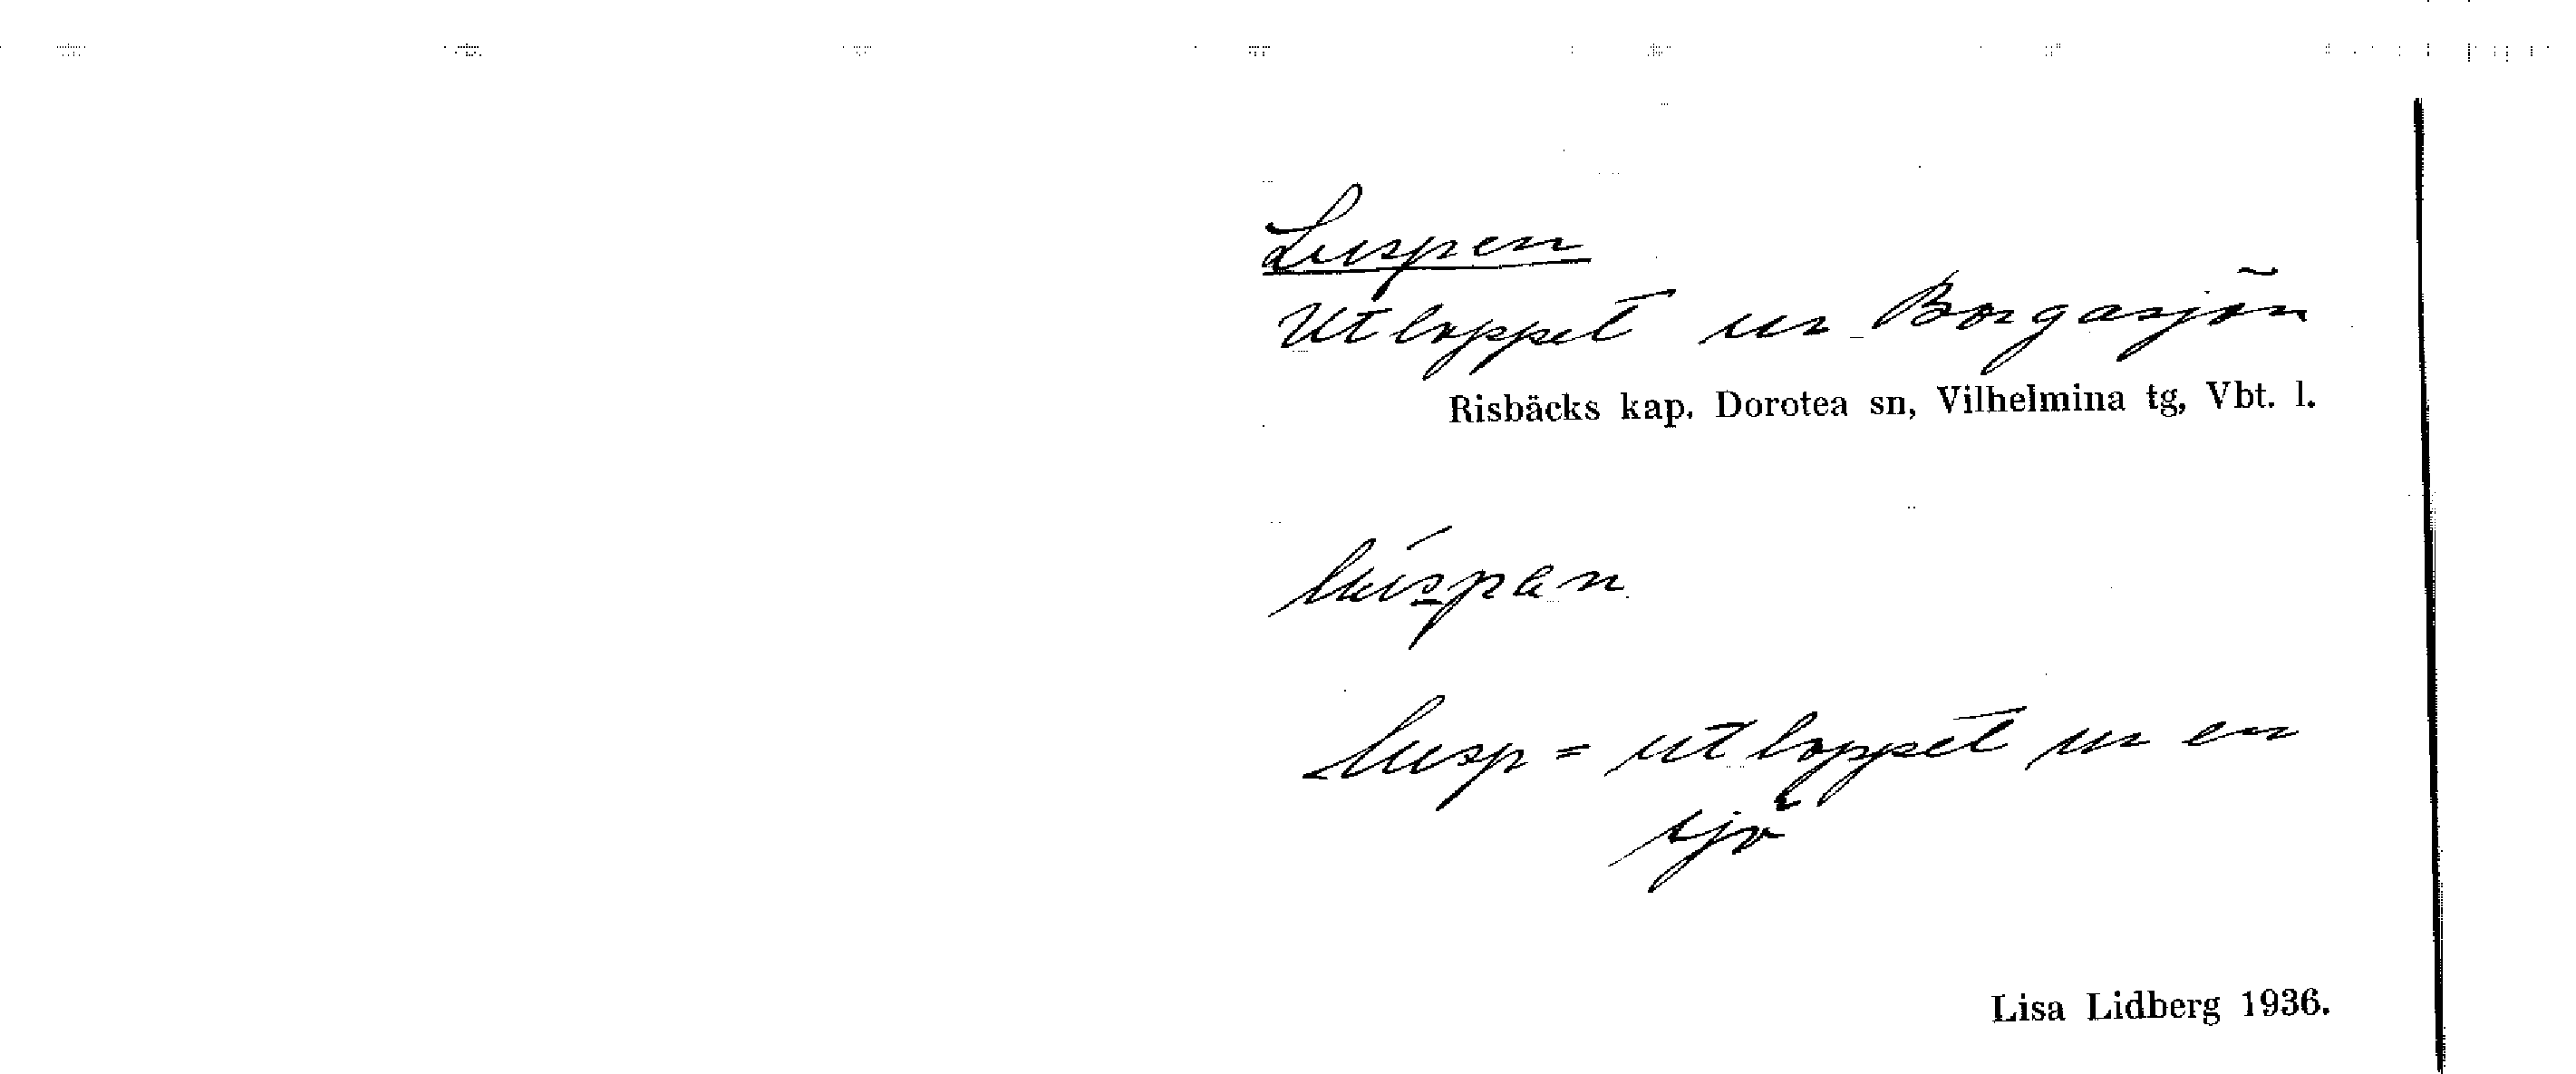 Luspen
Utloppet ur Borgasjön
Risbäcks kap. Dorotea sn, Vilhelmina tg, Vbt. l.
Lusp = utloppet ur en
sjö
Lisa Lidberg 1936.